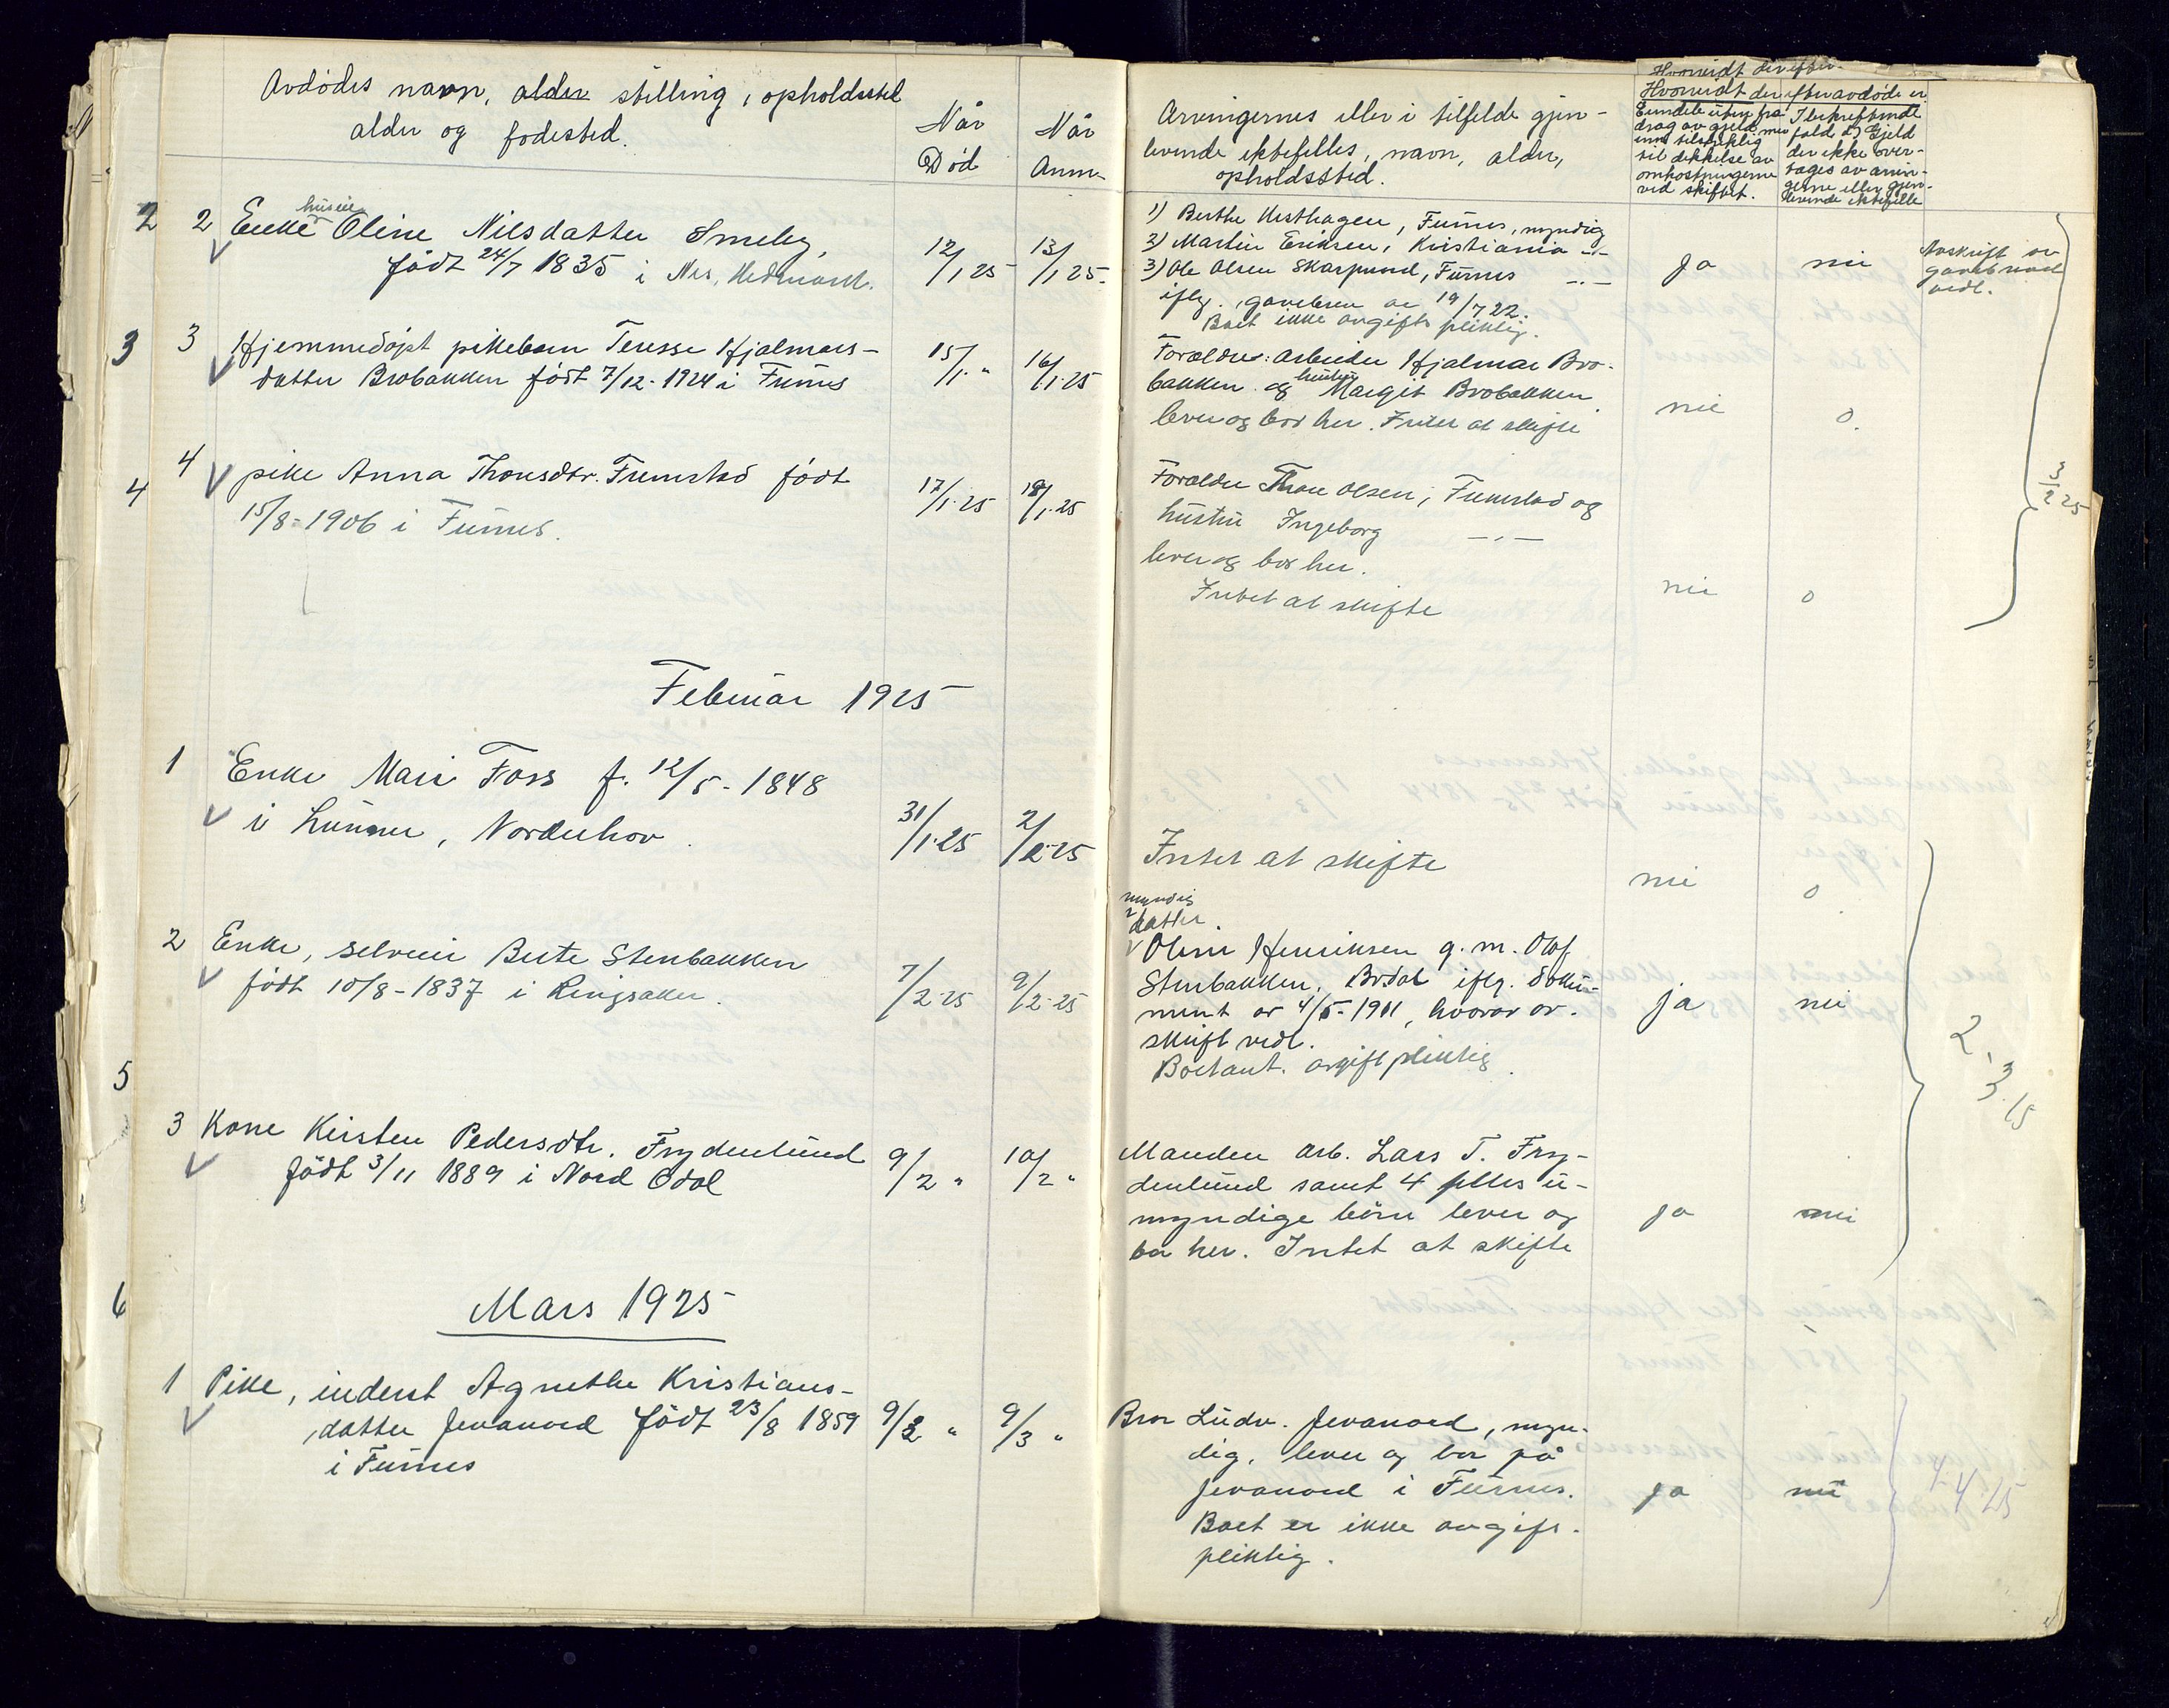 Avdødes navn, alder stilling, opholdssted
alder og fødested.
Når
Død
Når
Anm.
Arvingernes eller i tilfelde gjen-
levende ektefelles, navn, alder,
opholdssted.
Hvorvidt der efter
Hvorvidt der efter avdøde er
Eiendele uten fra-
drag av gjeld
tilstrekkelig
til dekkelse av
omkostningerne
ved skiftet.
I bekreftende
fald d) Gjeld
der ikke over-
tages av arvin-
gerne eller gjen-
levende ektefelle
2 2 Enke huseier Oline Nilsdatter Smeby,
født 24/7 1835 i Nes, Hedmark.
12/1 25
13/1 25.
1) Berthe Hesthagen, Furnes, myndig
2) Martin Eriksen, Kristiania -"-
3) Ole Olsen Skarpsund, Furnes -"-
iflg. gavebrev av 19/7 22.
Boet ikke avgifts pliktig.
Ja
nei
Avskrift av
gavebrev
vedl.
3 3 Hjemmedøpt pikebarn Teresse Hjalmars-
datter Brobakken født 7/12-1924 i Furnes
15/1. "
16/1.25
Forældre: arbeider Hjalmar Bro-
bakken og hustru Margit Brobakken
lever og bor her. Intet at skifte
nei
0.
4 4 pike Anna Thorsdtr. Fremstad født
15/8-1906 i Furnes.
17/1.25
18/1.25
Forældre Thore Olsen, Fremstad og
hustru Ingeborg -"-
lever og bor her.
Intet at skifte
nei
0
3/2 25
Februar 1925
1 Enke Mari Foss f. 12/5-1848
i Lunner, Norderhov.
31/1.25
2/2.25
Intet at skifte
nei
0
2 Enke, selveier Berte Stenbakken
født 10/8-1837 i Ringsaker.
7/2.25
9/2.25
myndig
datter.
Oline Henriksen g. m. Olof
Stenbakken, Brødal iflg. doku-
ment av 4/5-1911, hvorav av-
skrift vedl.
Boet ant. avgiftpliktig.
ja
nei
5
3 Kone Kirsten Pedersdtr. Frydenlund
født 3/11 1889 i Nord Odal
9/2 "
10/2 "
Manden arb. Lars T. Fry-
denlund samt 4 felles u-
myndige børn lever og
bor her. Intet at skifte
ja
nei
2.3.25
6
Mars 1925
1 Pike, inderst Agnethe Kristians-
datter Jevanord født 23/8 1859
i Furnes
9/3 "
9/3 "
Bror Ludv. Jevanord, myn-
dig, lever og bor på
Jevanord i Furnes.
Boet er ikke avgifs-
pliktig.
ja
nei
4-4-25